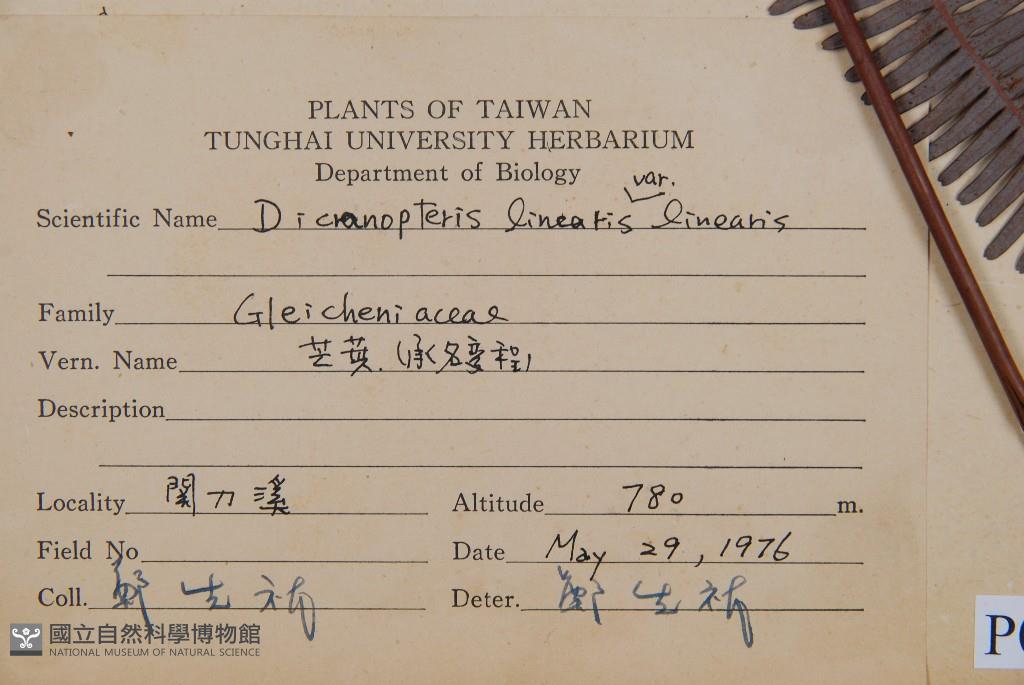 PLANTS OF TAIWAN
TUNGHAI UNIVERSITY HERBARIUM
Department of Biology
var.
Scientific Name Dicranopteris linearis linearis
Family Gleicheniaceae
Vern. Name 芒萁.(承名變種)
Description
Locality 関刀溪 Altitude 780 m.
Field No Date May 29, 1976
Coll. 鄭 生 Deter. 鄭 生
國立自然科學博物館
NATIONAL MUSEUM OF NATURAL SCIENCE